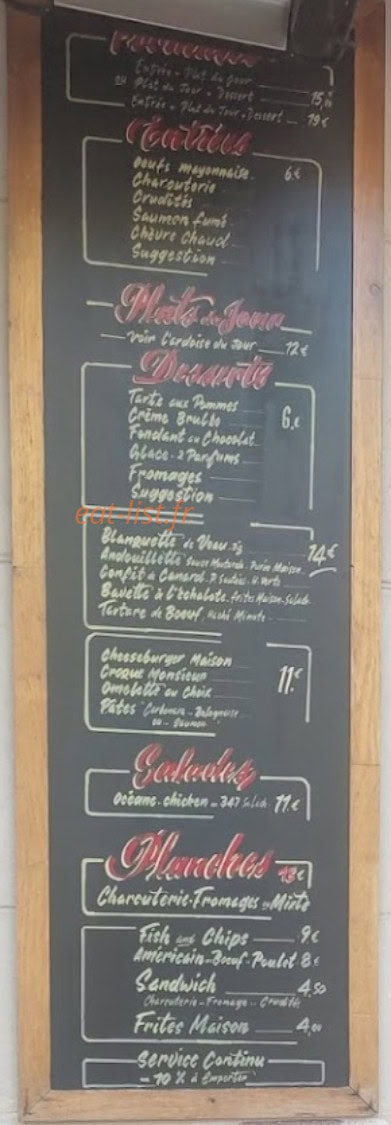 Formules
Entrée - Plat du Jour
ou Plat du Jour - Dessert 15,
Entrée - Plat du Jour - Dessert 19€
Entrées
Oeufs mayonnaise 6.€
Charcuterie
Crudités
Saumon fumé
Chèvre chaud
Suggestion
Plats du Jour
Voir l'ardoise du jour 12€
Desserts
Tarte aux Pommes
Crème Brulée 6.€
Fondant au Chocolat
Glace 2 Parfums
Fromages
Suggestion
eat-list.fr
Blanquette de Veau 14€
Andouillette Sauce Moutarde. Purée Maison
Confit de Canard. P. Sautées. H. Verts
Bavette à l'échalote. frites Maison. Salade
Tartare de Boeuf, Haché Minute
Cheeseburger Maison
Croque Monsieur 11.€
Omelette au Choix
Pâtes Carbonara - Bolognaise
ou Saumon
Salades
Océane. chicken ou 347 Salads 11.€
Planches 13€
Charcuterie. Fromages ou Mixte
Fish and Chips 9€
Américain - Boeuf - Poulet 8€
Sandwich 4,50
Charcuterie - Fromage - Crudités
Frites Maison 4,00
Service Continu
- 10 % à Emporter